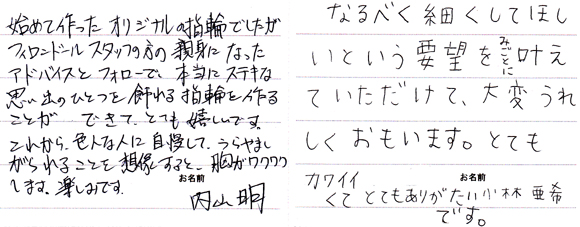 始めて作った オリジナルの指輪でしたが
フィロンドール スタッフの方の 親身になった
アドバイスと フォローで、本当に ステキな
思い出のひとつを 飾れる 指輪を作る
ことが できて、とても 嬉しいです。
これから、色んな人に 自慢して、うらやまし
がられることを 想像すると、胸がワクワク
します。楽しみです。
お名前
内山 明
なるべく 細くしてほし
いという 要望を みごとに 叶え
ていただけて、大変うれ
しく おもいます。とても
カワイイ
くて とてもありがたい
です。
お名前
小林 亜希